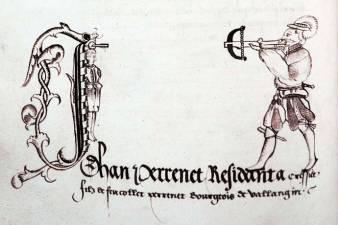 Jehan Perrenet Residant a cressie
filz de feu collet perrenet Bourgeois de Vallangin